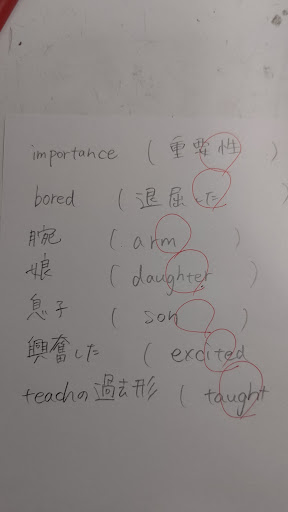 importance ( 重要性 )
bored ( 退屈した )
腕 ( arm )
娘 ( daughter )
息子 ( son )
興奮した ( excited )
teachの過去形 ( taught